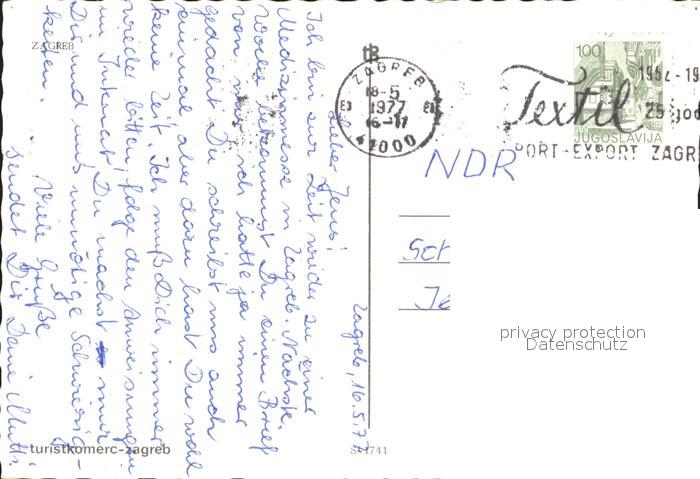 ZAGREB
Zagreb, 16.5.77
Lieber Jens!
Ich bin zur Zeit wieder zu einer
Medizinmesse in Zagreb. Nächste
Woche bekommst Du einen Brief
von mir. Ich hatte ja immer
gedacht Du schreibst uns auch
einmal aber dazu hast Du wohl
keine Zeit. Ich muß Dich immer
wieder bitten, folge den Anweisungen
im Internat, Du machst nur
Dir und uns unnötige Schwierig-
keiten.
Viele Grüße
sendet Dir Deine Mutti
turistkomerc-zagreb
S-1741
ZAGREB
18-5
1977
16-17
41000
Textil
1952-19
25 god
PORT-EXPORT ZAGR
100
JUGOSLAVIJA
NDR
Sch
Je
privacy protection
Datenschutz